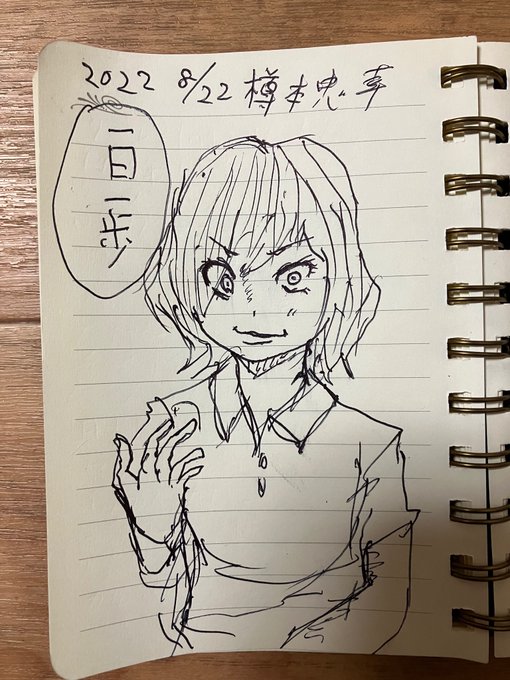 2022 8/22 樽本忠幸
一日一歩